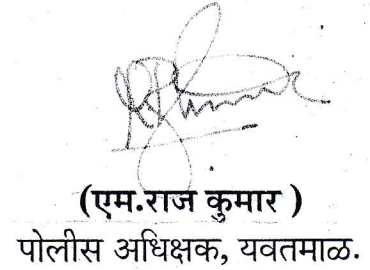 (एम.राज कुमार )
पोलीस अधिक्षक, यवतमाळ.